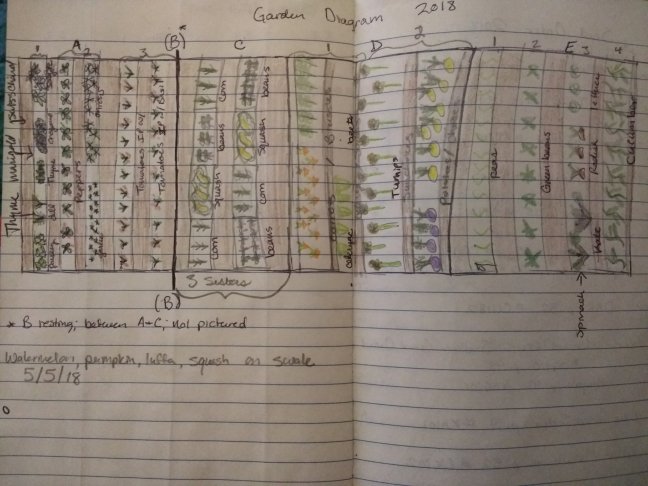 Garden Diagram 2018
(B)*
A C D E
1 2 3 1 2 1 2 3 4
Thyme
Peppers
onions
garlic
Thyme
dill
parsley
Tomatoes
Tomatoes
corn
beans
squash
corn
beans
squash
corn
beans
carrots
beets
cabbage
Turnips
Potatoes
peas
Green beans
lettuce
Radish
Kale
Spinach
Cucumber
3 Sisters
(B)
* B resting; between A+C; not pictured
Watermelon, pumpkin, luffa, squash on swale
5/5/18